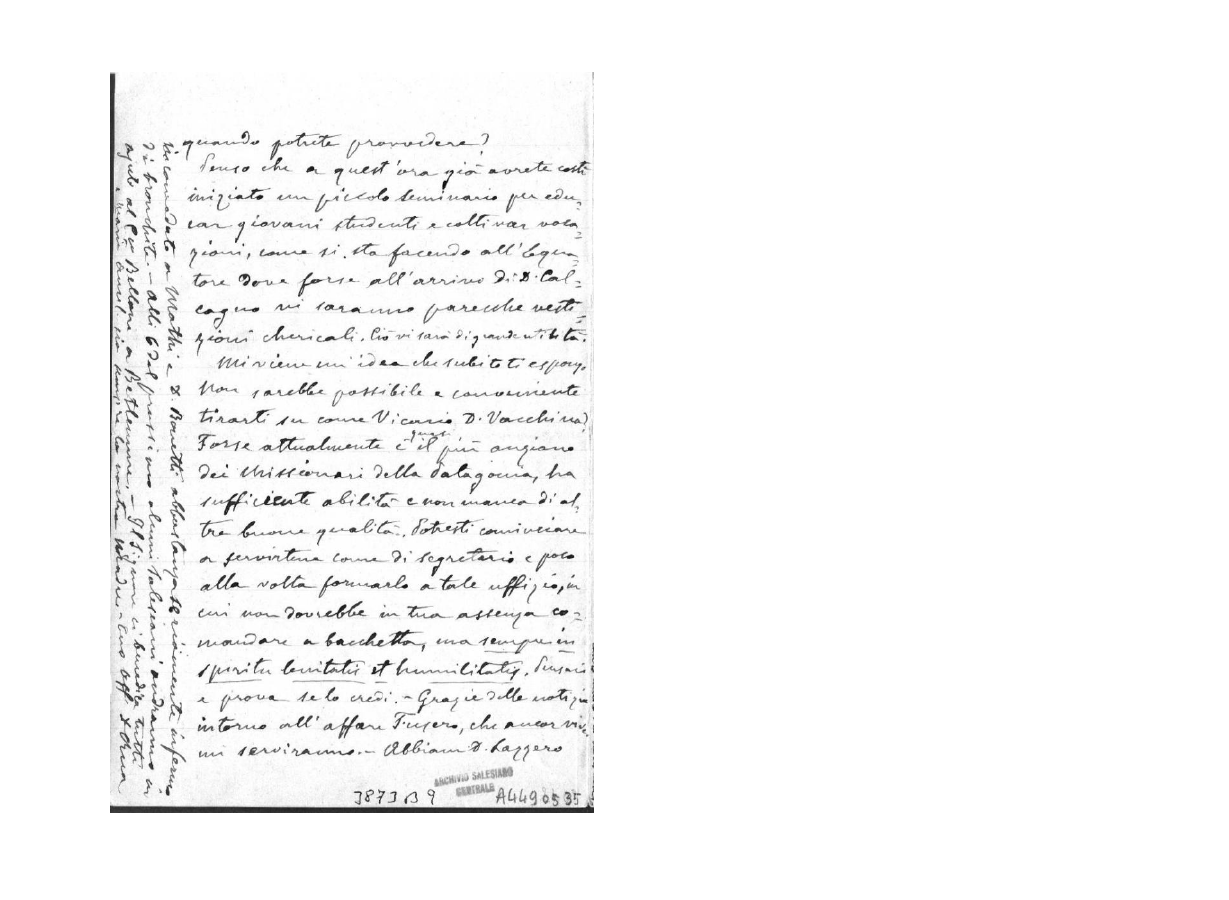 quando potrete provvedere?
Penso che a quest'ora già avrete costì
iniziato un piccolo seminario per edu-
car giovani studenti e coltivar voca-
zioni, come si sta facendo all'Equa-
tore dove forse all'arrivo di D. Cal-
cagno vi saranno parecchie vesti-
zioni chericali. Ciò vi sarà di grande utilità.
Mi viene un'idea che subito ti espongo
Non sarebbe possibile e conveniente
tirarti su come Vicario D. Vacchina?
Forse attualmente è quasi il più anziano
dei Missionari della Patagonia, ha
sufficiente abilità e non manca di al-
tre buone qualità. Potresti cominciare
a servirtene come di segretario e poco
alla volta formarlo a tale uffizio, in
cui non dovrebbe in tua assenza co-
mandare a bacchetta, ma sempre in
spiritu lenitatis et humilitatis. Pensaci
e prova se lo credi. - Grazie delle notizie
intorno all'affare Fusero, che ancor
mi serviranno. - Abbiam D. Lazzero
incomodato a Mathi e D. Bonetti abbastanza seriamente infermo
di bronchite. - Alli 6 del prossimo alcuni Salesiani andranno in
ajuto al Belloni a Betlemme. - Il Signore ci benedica tutti
la nostra Madre - Tuo aff.
ARCHIVIO SALESIANO
CENTRALE
3873 B 9
A4490535